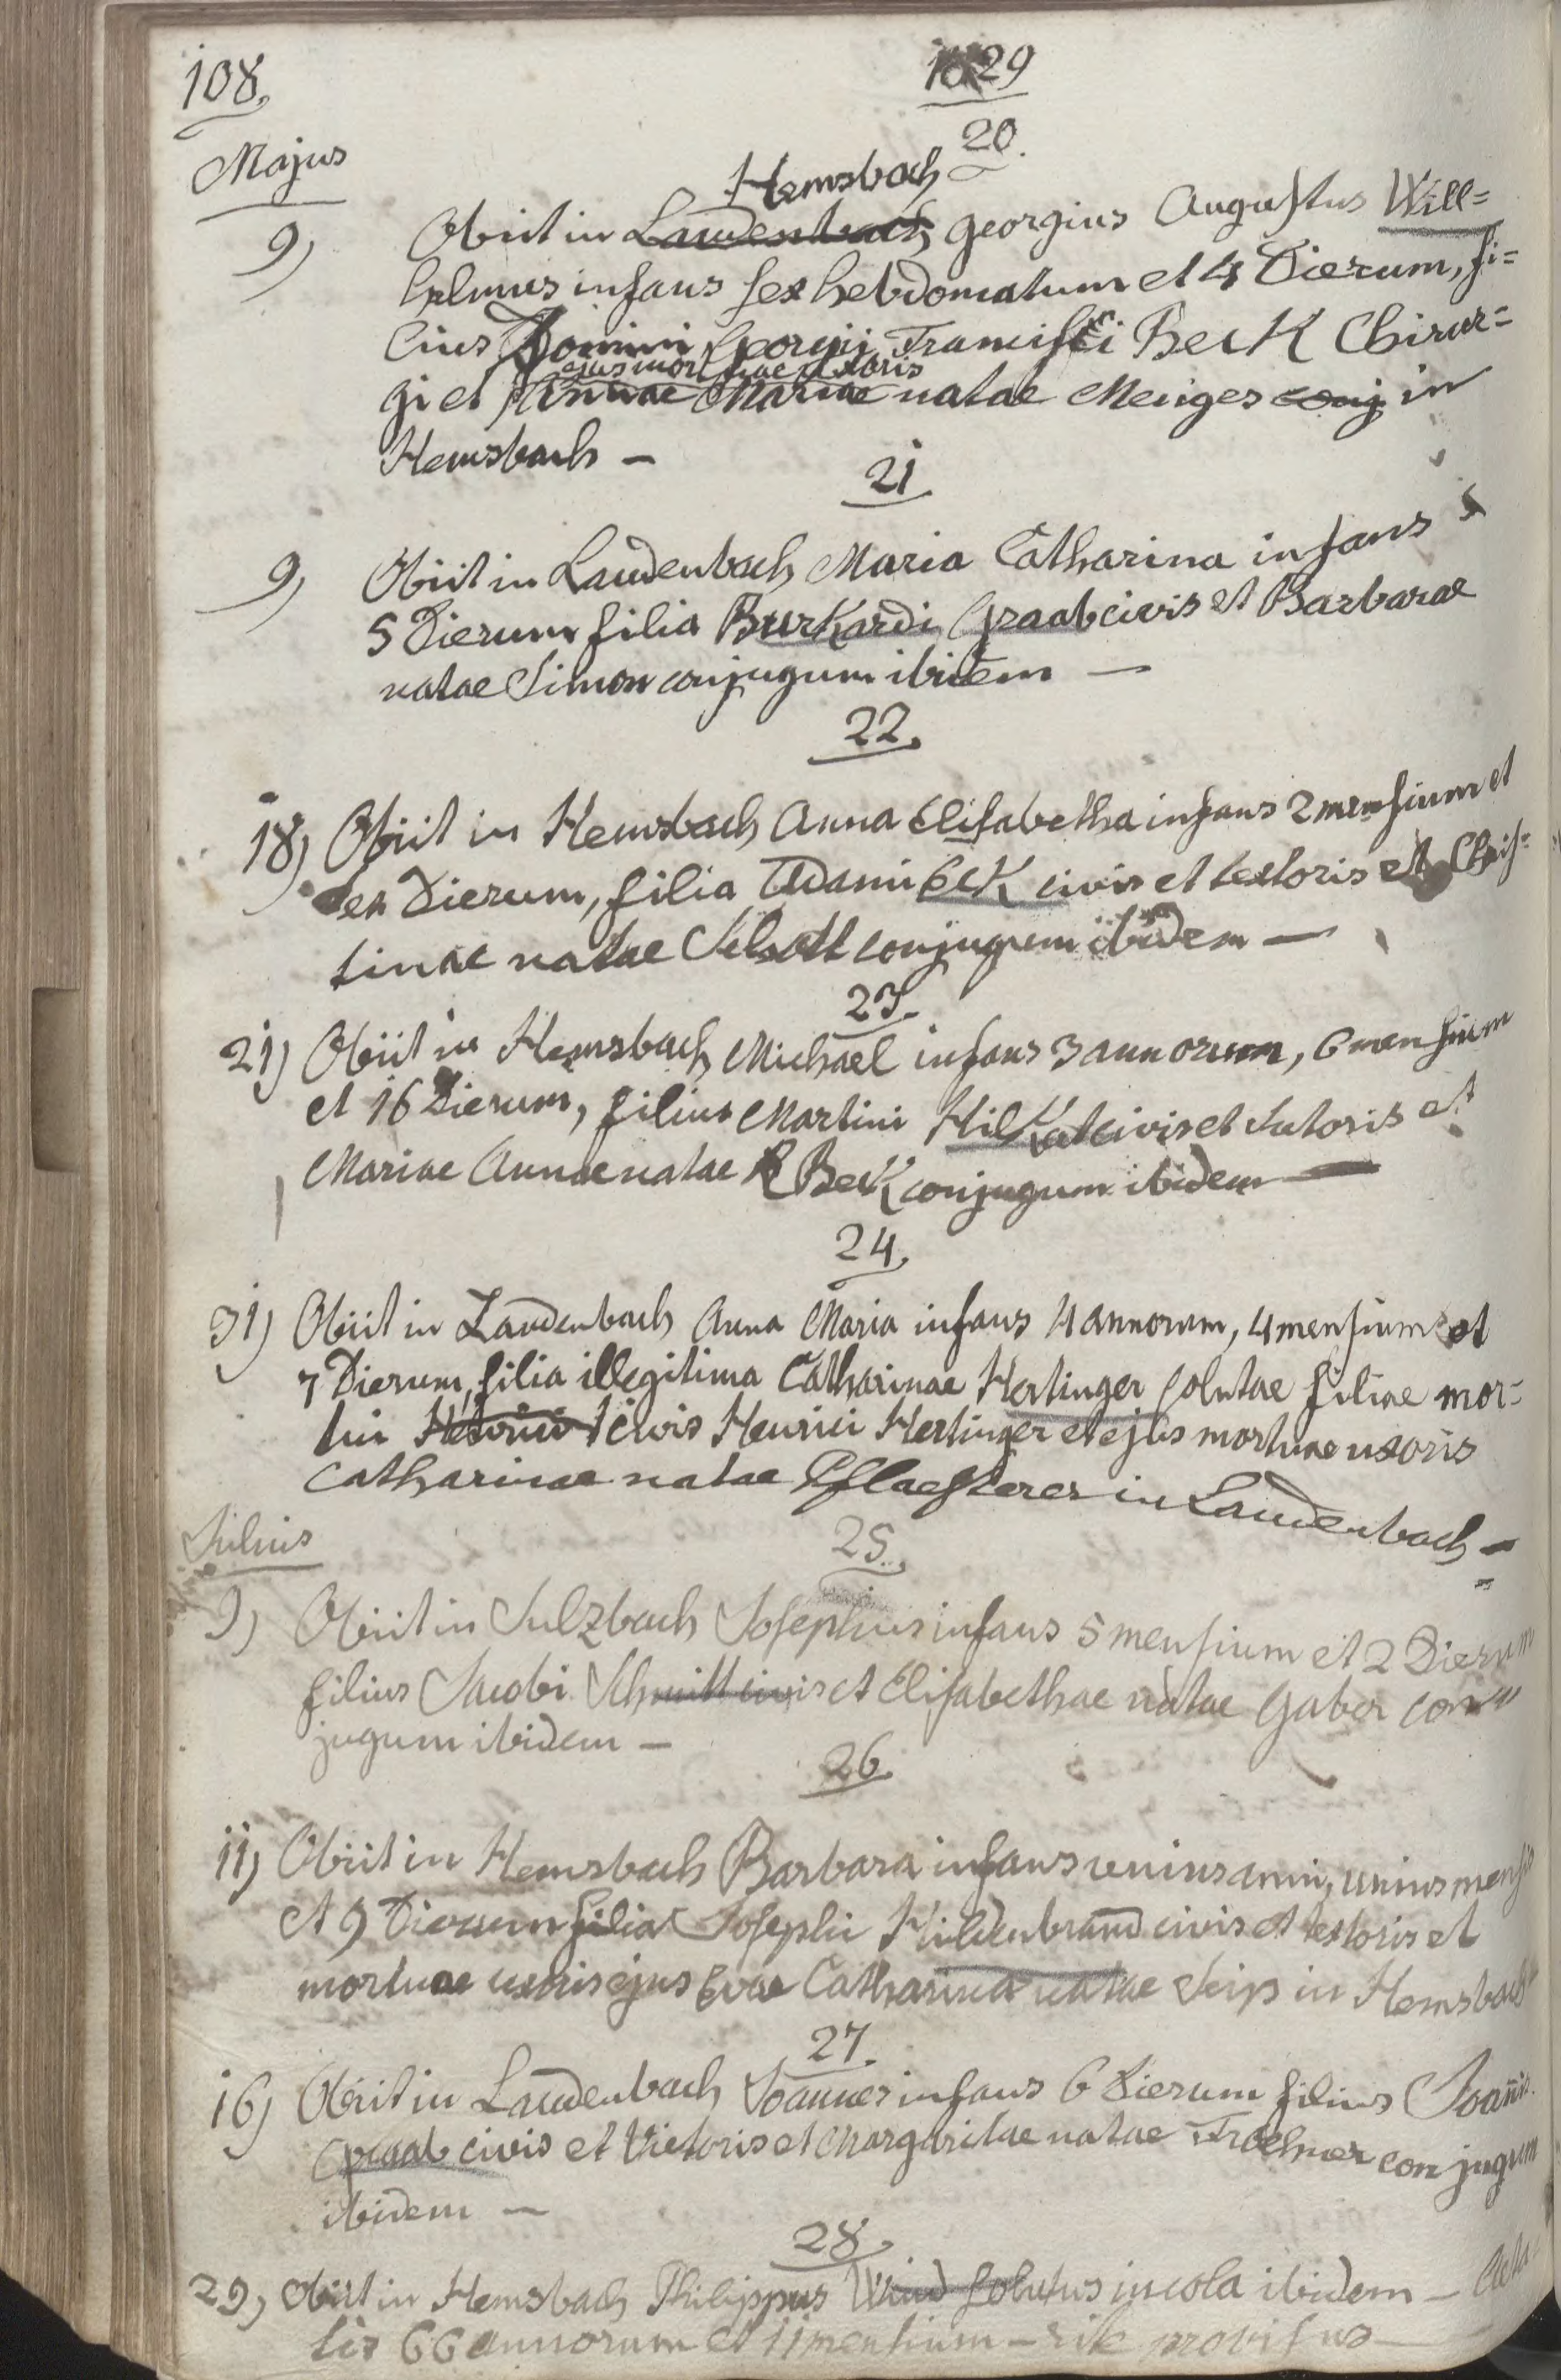 108.
1829
Majus
20.
Hemsbach
9) Obiit in Laudenbach Georgius Augustus Will=
helmus infans sex hebdomatum et 4 Dierum, fi=
lius Domini Georgii Francisci Beck Chirur=
ejus mortuae uxoris
gi et Annae Mariae natae Menges conj in
Hemsbach —
21
9) Obiit in Laudenbach Maria Catharina infans
5 Dierum filia Burkardi Graab civis et Barbarae
natae Simon conjugum ibidem —
22.
18) Obiit in Hemsbach Anna Elisabetha infans 2 mensium et
sex Dierum, filia Adami Eck civis et textoris et Chris=
tinae natae conjugum ibidem —
23.
21) Obiit in Hemsbach Michael infans 3 annorum, 6 mensium
et 16 Dierum, filius Martini Hilkat civis et Sutoris et
Mariae Annae natae Beck conjugum ibidem —
24.
31) Obiit in Laudenbach Anna Maria infans 4 annorum, 4 mensium et
7 Dierum, filia illegitima Catharinae Hertinger solutae filiae mor=
tui civis Henrici Hertinger et ejus mortuae uxoris
Catharinae natae Pflaesterer in Laudenbach —
Julius
25.
9) Obiit in Sulzbach Josephus infans 5 mensium et 2 Dierum
filius Jacobi Schmitt civis et Elisabethae natae Gaber con=
jugum ibidem —
26.
11) Obiit in Hemsbach Barbara infans unius anni, unius mensis
et 9 Dierum filia Josephi Hildenbrand civis et textoris et
mortuae uxoris ejus Evae Catharina natae Seip in Hemsbach
27.
16) Obiit in Laudenbach Joannes infans 6 Dierum filius Joanis
Graab civis et Vietoris et Margaritae natae Froehner conjugum
ibidem —
28.
29) Obiit in Hemsbach Philippus Wind solutus incola ibidem — Aeta
tis 66 annorum et 11 mensium — rite provisus —